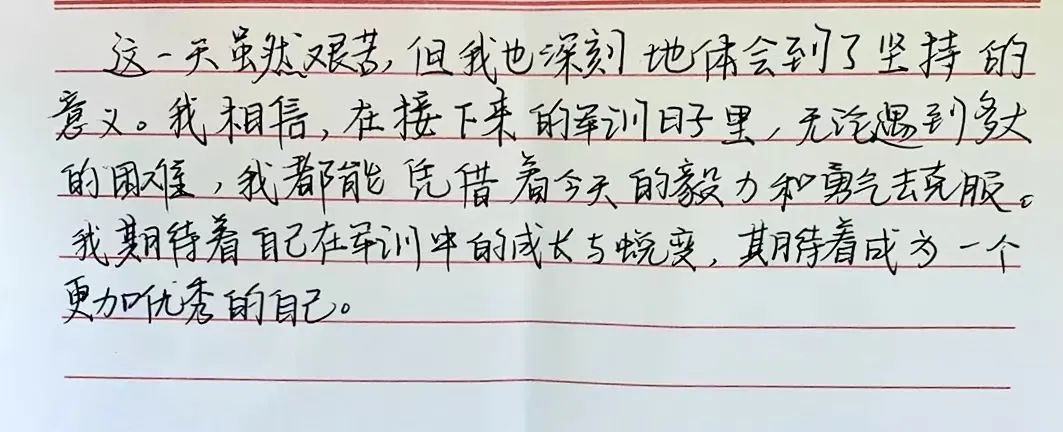 这一天虽然艰苦，但我也深刻地体会到了坚持的
意义。我相信，在接下来的军训日子里，无论遇到多大
的困难，我都能凭借着今天的毅力和勇气去克服。
我期待着自己在军训中的成长与蜕变，期待着成为一个
更加优秀的自己。